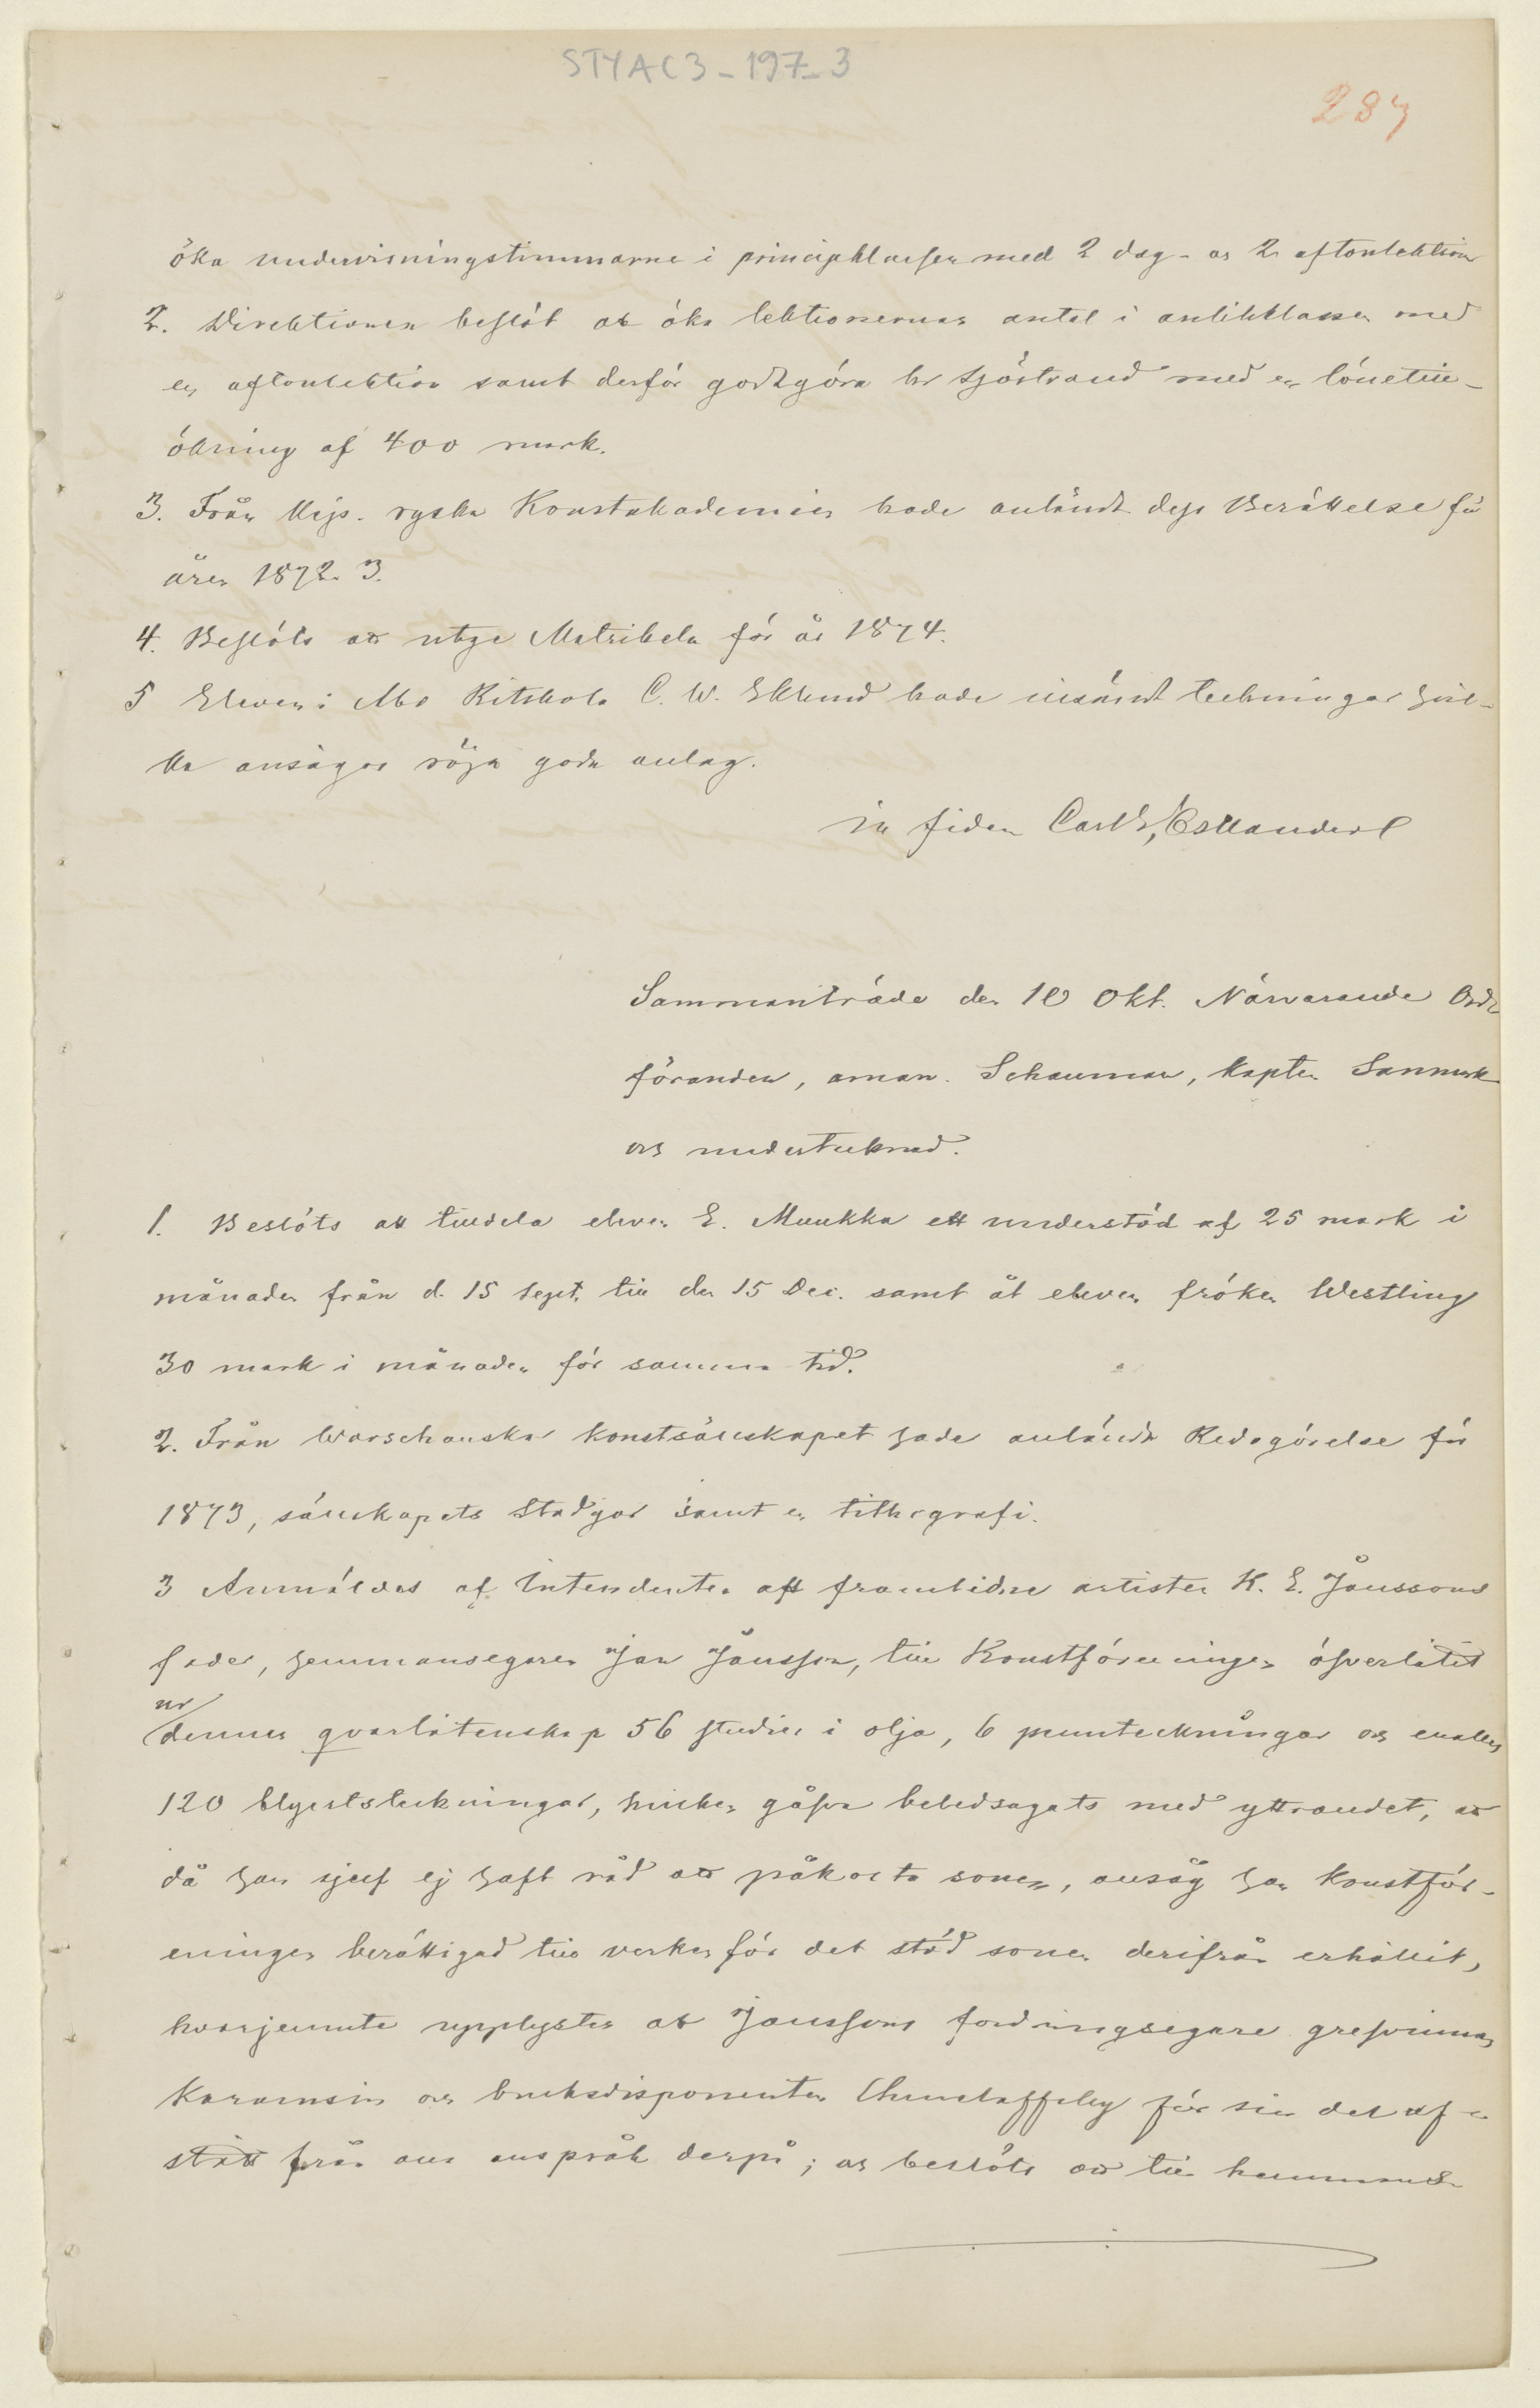 STYAC3-197-3
287
öka undervisningstimmarne i principklassen med 2 dag- och 2 aftonlektioner
2. Direktionen beslöt att öka lektionernas antal i antikklassen med
en aftonlektion samt derför godtgöra hr Sjöstrand med en lönetill-
ökning af 400 mark.
3. Från Kejs. ryska Konstakademien hade anländt dess Berättelse för
åren 1872-3.
4. Beslöts att utge Matrikeln för år 1874.
5 Eleven i Åbo Ritskola C. W. Eklund hade insändt teckningar hvil-
ka ansågos röja goda anlag.
in fidem Carl G. Estlander
Sammanträde den 10 Okt. Närvarande Ord-
föranden, aman. Schauman, kapten Sanmark
och undertecknad.
1. Beslöts att tilldela eleven E. Muukka ett understöd af 25 mark i
månaden från d. 15 Sept. till den 15 Dec. samt åt eleven fröken Westling
30 mark i månaden för samma tid.
2. Från Warschauska konstsällskapet hade anländt Redogörelse för
1873, sällskapets Stadgar samt en lithografi.
3 Anmäldes af Intendenten att framlidne artisten K. E. Jánssons
fader, hemmansegaren Jan Jánsson, till Konstföreningen öfverlåtit
ur
dennes qvarlåtenskap 56 studier i olja, 6 pennteckningar och enalles
120 blyertsteckningar, hvilken gåfva beledsagats med yttrandet, att
då han sjelf ej haft råd att påkosta sonen, ansåg han Konstför-
eningen berättigad till verken för det stöd sonen derifrån erhållit,
hvarjemnte upplystes att Janssons fordringsegare grefvinnan
Karamsin och bruksdisponenten för sin del af-
stått från all anspråk derpå; och beslöts att till hemmans-